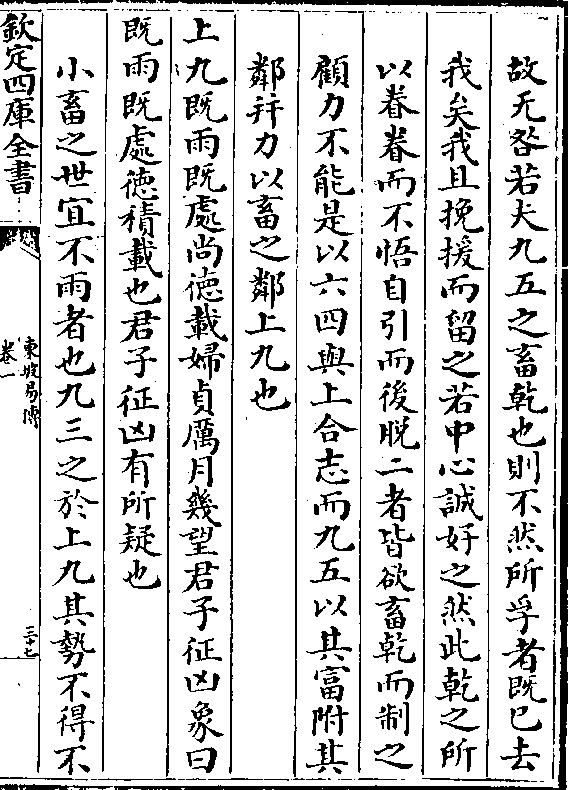 故无咎若夫九五之畜乾也則不然所孚者既已去
我矣我且挽援而留之若中心誠好之然此乾之所
以眷眷而不悟自引而後脱二者皆欲畜乾而制之
顧力不能是以六四與上合志而九五以其富附其
鄰并力以畜之鄰上九也
上九既雨既處尚徳載婦貞厲月幾望君子征凶象曰
既雨既處徳積載也君子征凶有所疑也
小畜之世宜不雨者也九三之於上九其勢不得不
欽定四庫全書
東坡易傳
卷一
三十七